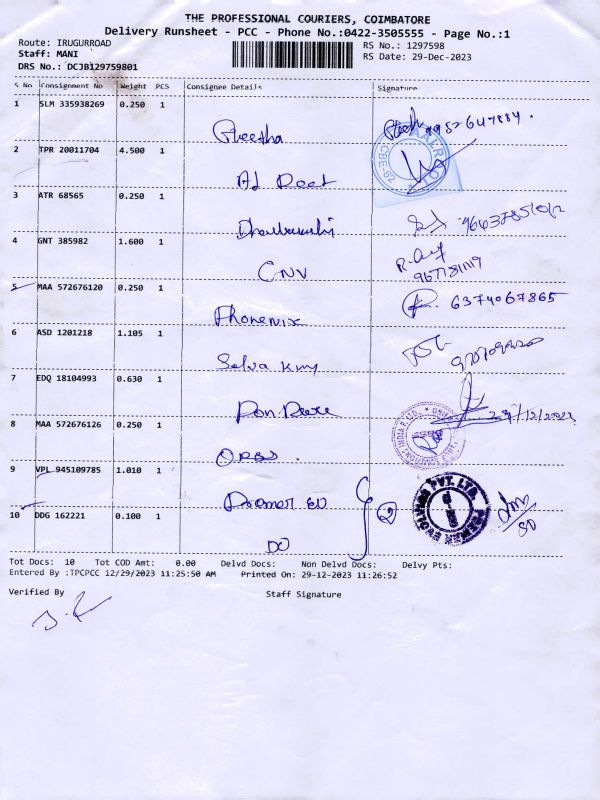 THE PROFESSIONAL COURIERS, COIMBATORE
Delivery Runsheet - PCC - Phone No.:0422-3505555 - Page No.:1
Route: IRUGURROAD
RS No.: 1297598
Staff: MANI
RS Date: 29-Dec-2023
DRS No.: DCJB129759801
S No Consignment No Weight PCS Consignee Details Signature
1 SLM 335938269 0.250 1
Preetha
2 TPR 20011704 4.500 1
3 ATR 68565 0.250 1
4 GNT 385982 1.600 1
CNV
5 MAA 572676120 0.250 1 6374067865
Phonenix
6 ASD 1201218 1.105 1
Selva
7 EDQ 18104993 0.630 1
29/12/2023
8 MAA 572676126 0.250 1
9 VPL 945109785 1.010 1
Premer
10 DDG 162221 0.100 1
DO
Tot Docs: 10 Tot COD Amt: 0.00 Delvd Docs: Non Delvd Docs: Delvy Pts:
Entered By :TPCPCC 12/29/2023 11:25:50 AM Printed On: 29-12-2023 11:26:52
Verified By Staff Signature